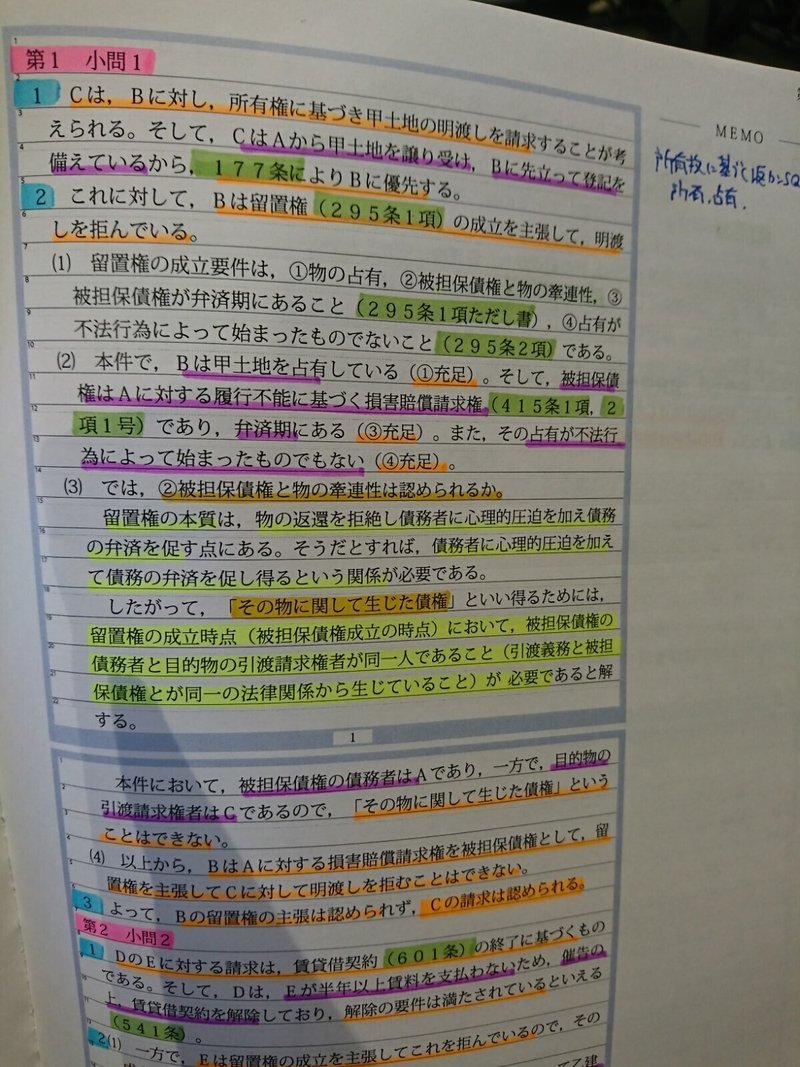 第1　小問1
1　Cは，Bに対し，所有権に基づき甲土地の明渡しを請求することが考
えられる。そして，CはAから甲土地を譲り受け，Bに先立って登記を
備えているから，177条によりBに優先する。
2　これに対して，Bは留置権（295条1項）の成立を主張して，明渡
しを拒んでいる。
⑴　留置権の成立要件は，①物の占有，②被担保債権と物の牽連性，③
被担保債権が弁済期にあること（295条1項ただし書），④占有が
不法行為によって始まったものでないこと（295条2項）である。
⑵　本件で，Bは甲土地を占有している（①充足）。そして，被担保債
権はAに対する履行不能に基づく損害賠償請求権（415条1項，2
項1号）であり，弁済期にある（③充足）。また，その占有が不法行
為によって始まったものでもない（④充足）。
⑶　では，②被担保債権と物の牽連性は認められるか。
留置権の本質は，物の返還を拒絶し債務者に心理的圧迫を加え債務
の弁済を促す点にある。そうだとすれば，債務者に心理的圧迫を加え
て債務の弁済を促し得るという関係が必要である。
したがって，「その物に関して生じた債権」といい得るためには，
留置権の成立時点（被担保債権成立の時点）において，被担保債権の
債務者と目的物の引渡請求権者が同一人であること（引渡義務と被担
保債権とが同一の法律関係から生じていること）が 必要であると解
する。
1
本件において，被担保債権の債務者はAであり，一方で，目的物の
引渡請求権者はCであるので，「その物に関して生じた債権」という
ことはできない。
⑷　以上から，BはAに対する損害賠償請求権を被担保債権として，留
置権を主張してCに対して明渡しを拒むことはできない。
3　よって，Bの留置権の主張は認められず，Cの請求は認められる。
第2　小問2
1　DのEに対する請求は，賃貸借契約（601条）の終了に基づくもの
である。そして，Dは，Eが半年以上賃料を支払わないため，催告の
上，賃貸借契約を解除しており，解除の要件は満たされているといえる
（541条）。
2⑴　一方で，Eは留置権の成立を主張してこれを拒んでいるので，その
MEMO
所有権に基づく返かんSQ
所有，占有．